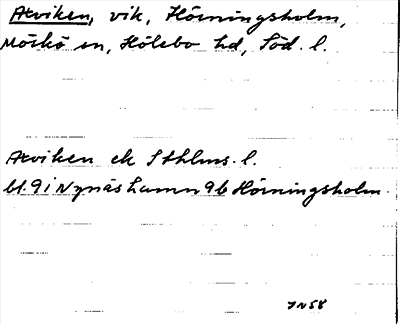 Akviken, vik, Hörningsholm,
Mörkö sn, Hölebo hd, Söd. l.
Akviken ek Sthlms. l.
bl. 9i Nynäshamn 9b Hörningsholm.
JN58